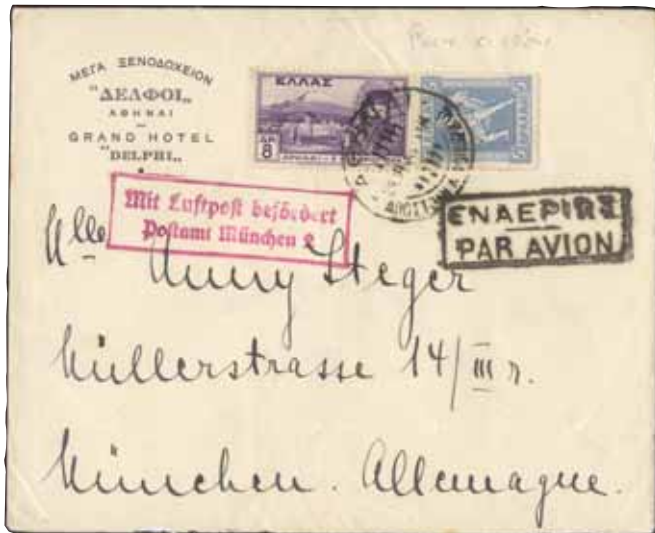 ΜΕΓΑ ΞΕΝΟΔΟΧΕΙΟΝ
"ΔΕΛΦΟΙ„
ΑΘΗΝΑΙ
GRAND HOTEL
"DELPHI„
ΕΛΛΑΣ
ΔΡ
8
5
5
Mit Luftpost befördert
Postamt München 2
ΕΝΑΕΡΙΩΣ
PAR AVION
Mlle Anny Steger
Müllerstrasse 14/III r.
München. Allemagne.